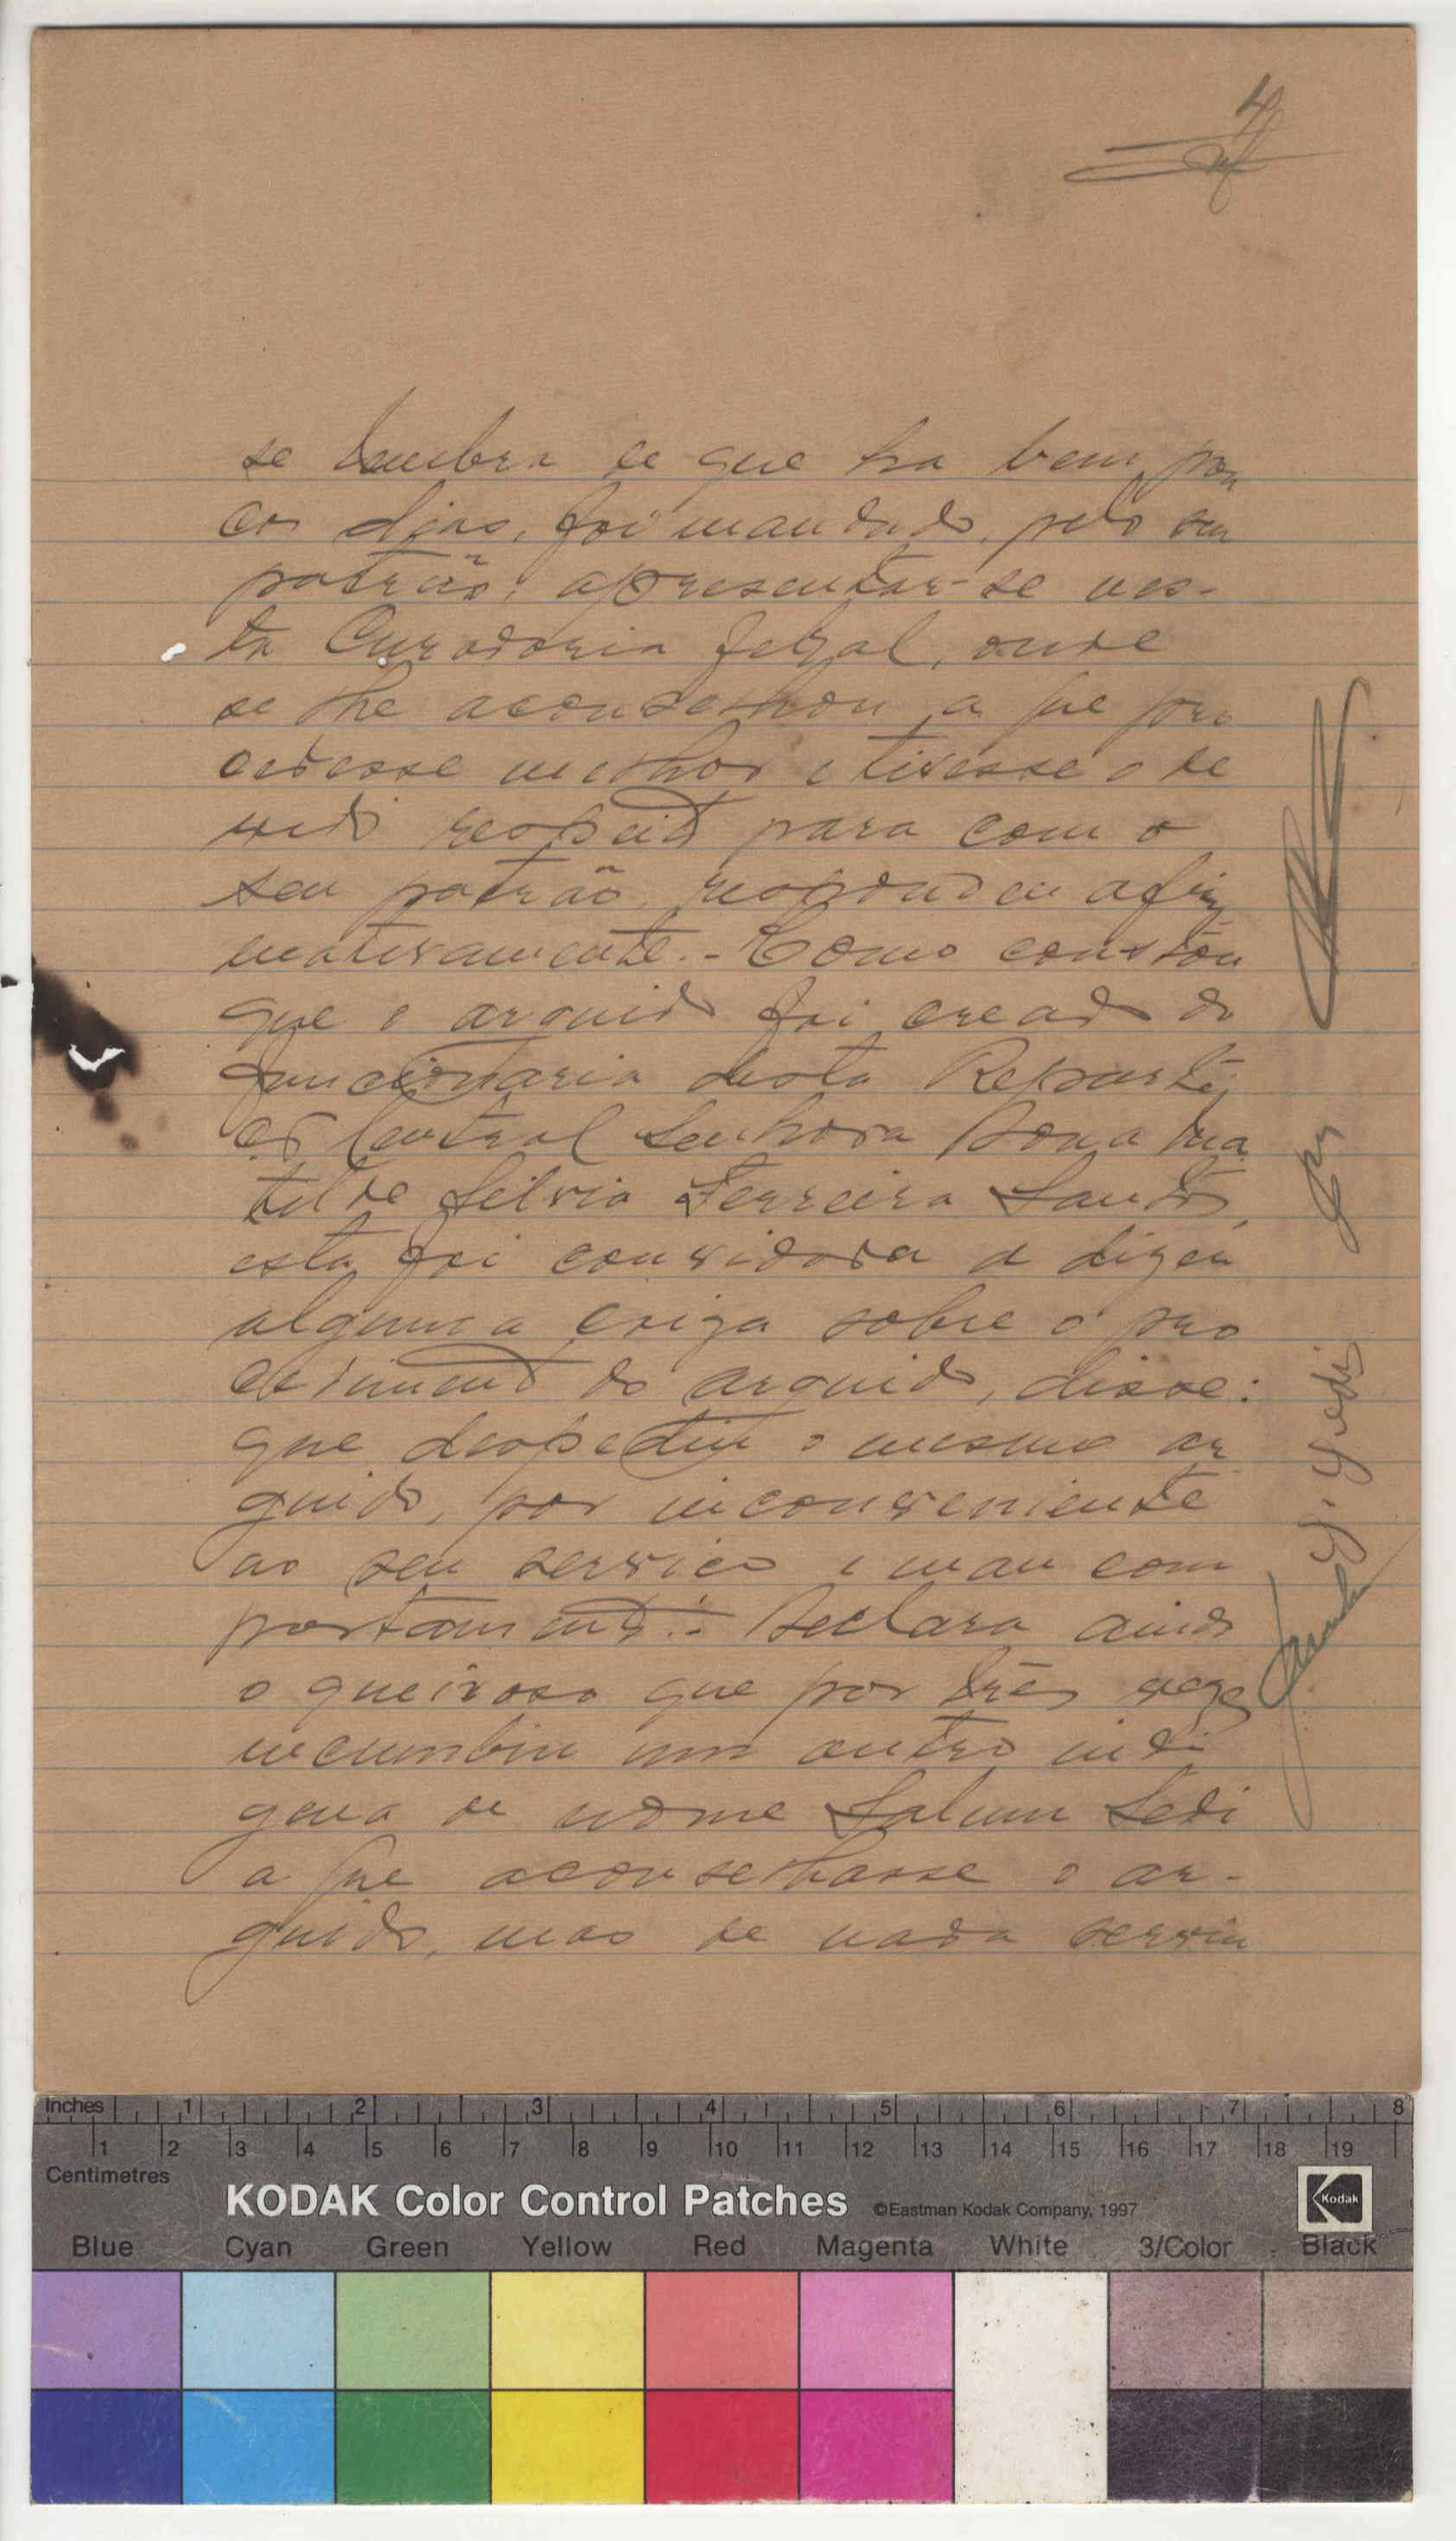 4
se lembra de que ha bem pou
cos dias, foi mandado, pelo seu
patrão, apresentar-se nes-
ta Curadoria Geral, onde
se lhe aconselhou a que pro
cedesse melhor e tivesse o de
vido respeito para com o
seu patrão, respondeu afir
mativamente. - Como constou
que o arguido foi creado do
funcionaria desta Reparti
ção Central Senhora Dona Ma
tilde Silvia Ferreira Santos,
esta foi convidada a dizer
alguma coiza sobre o pro
cedimento do arguido, disse:
que despediu o mesmo ar
guido, por inconveniente
ao seu serviço e mau com
portamento. - Declara ainda
o queixoso que por três vezes
incumbiu um outro indi
gena de nome Salum Sedi
a que aconselhasse o ar-
guido, mas de nada serviu
Inches 1 2 3 4 5 6 7 8
1 2 3 4 5 6 7 8 9 10 11 12 13 14 15 16 17 18 19
Centimetres
KODAK Color Control Patches ©Eastman Kodak Company, 1997 Kodak
Blue Cyan Green Yellow Red Magenta White 3/Color Black